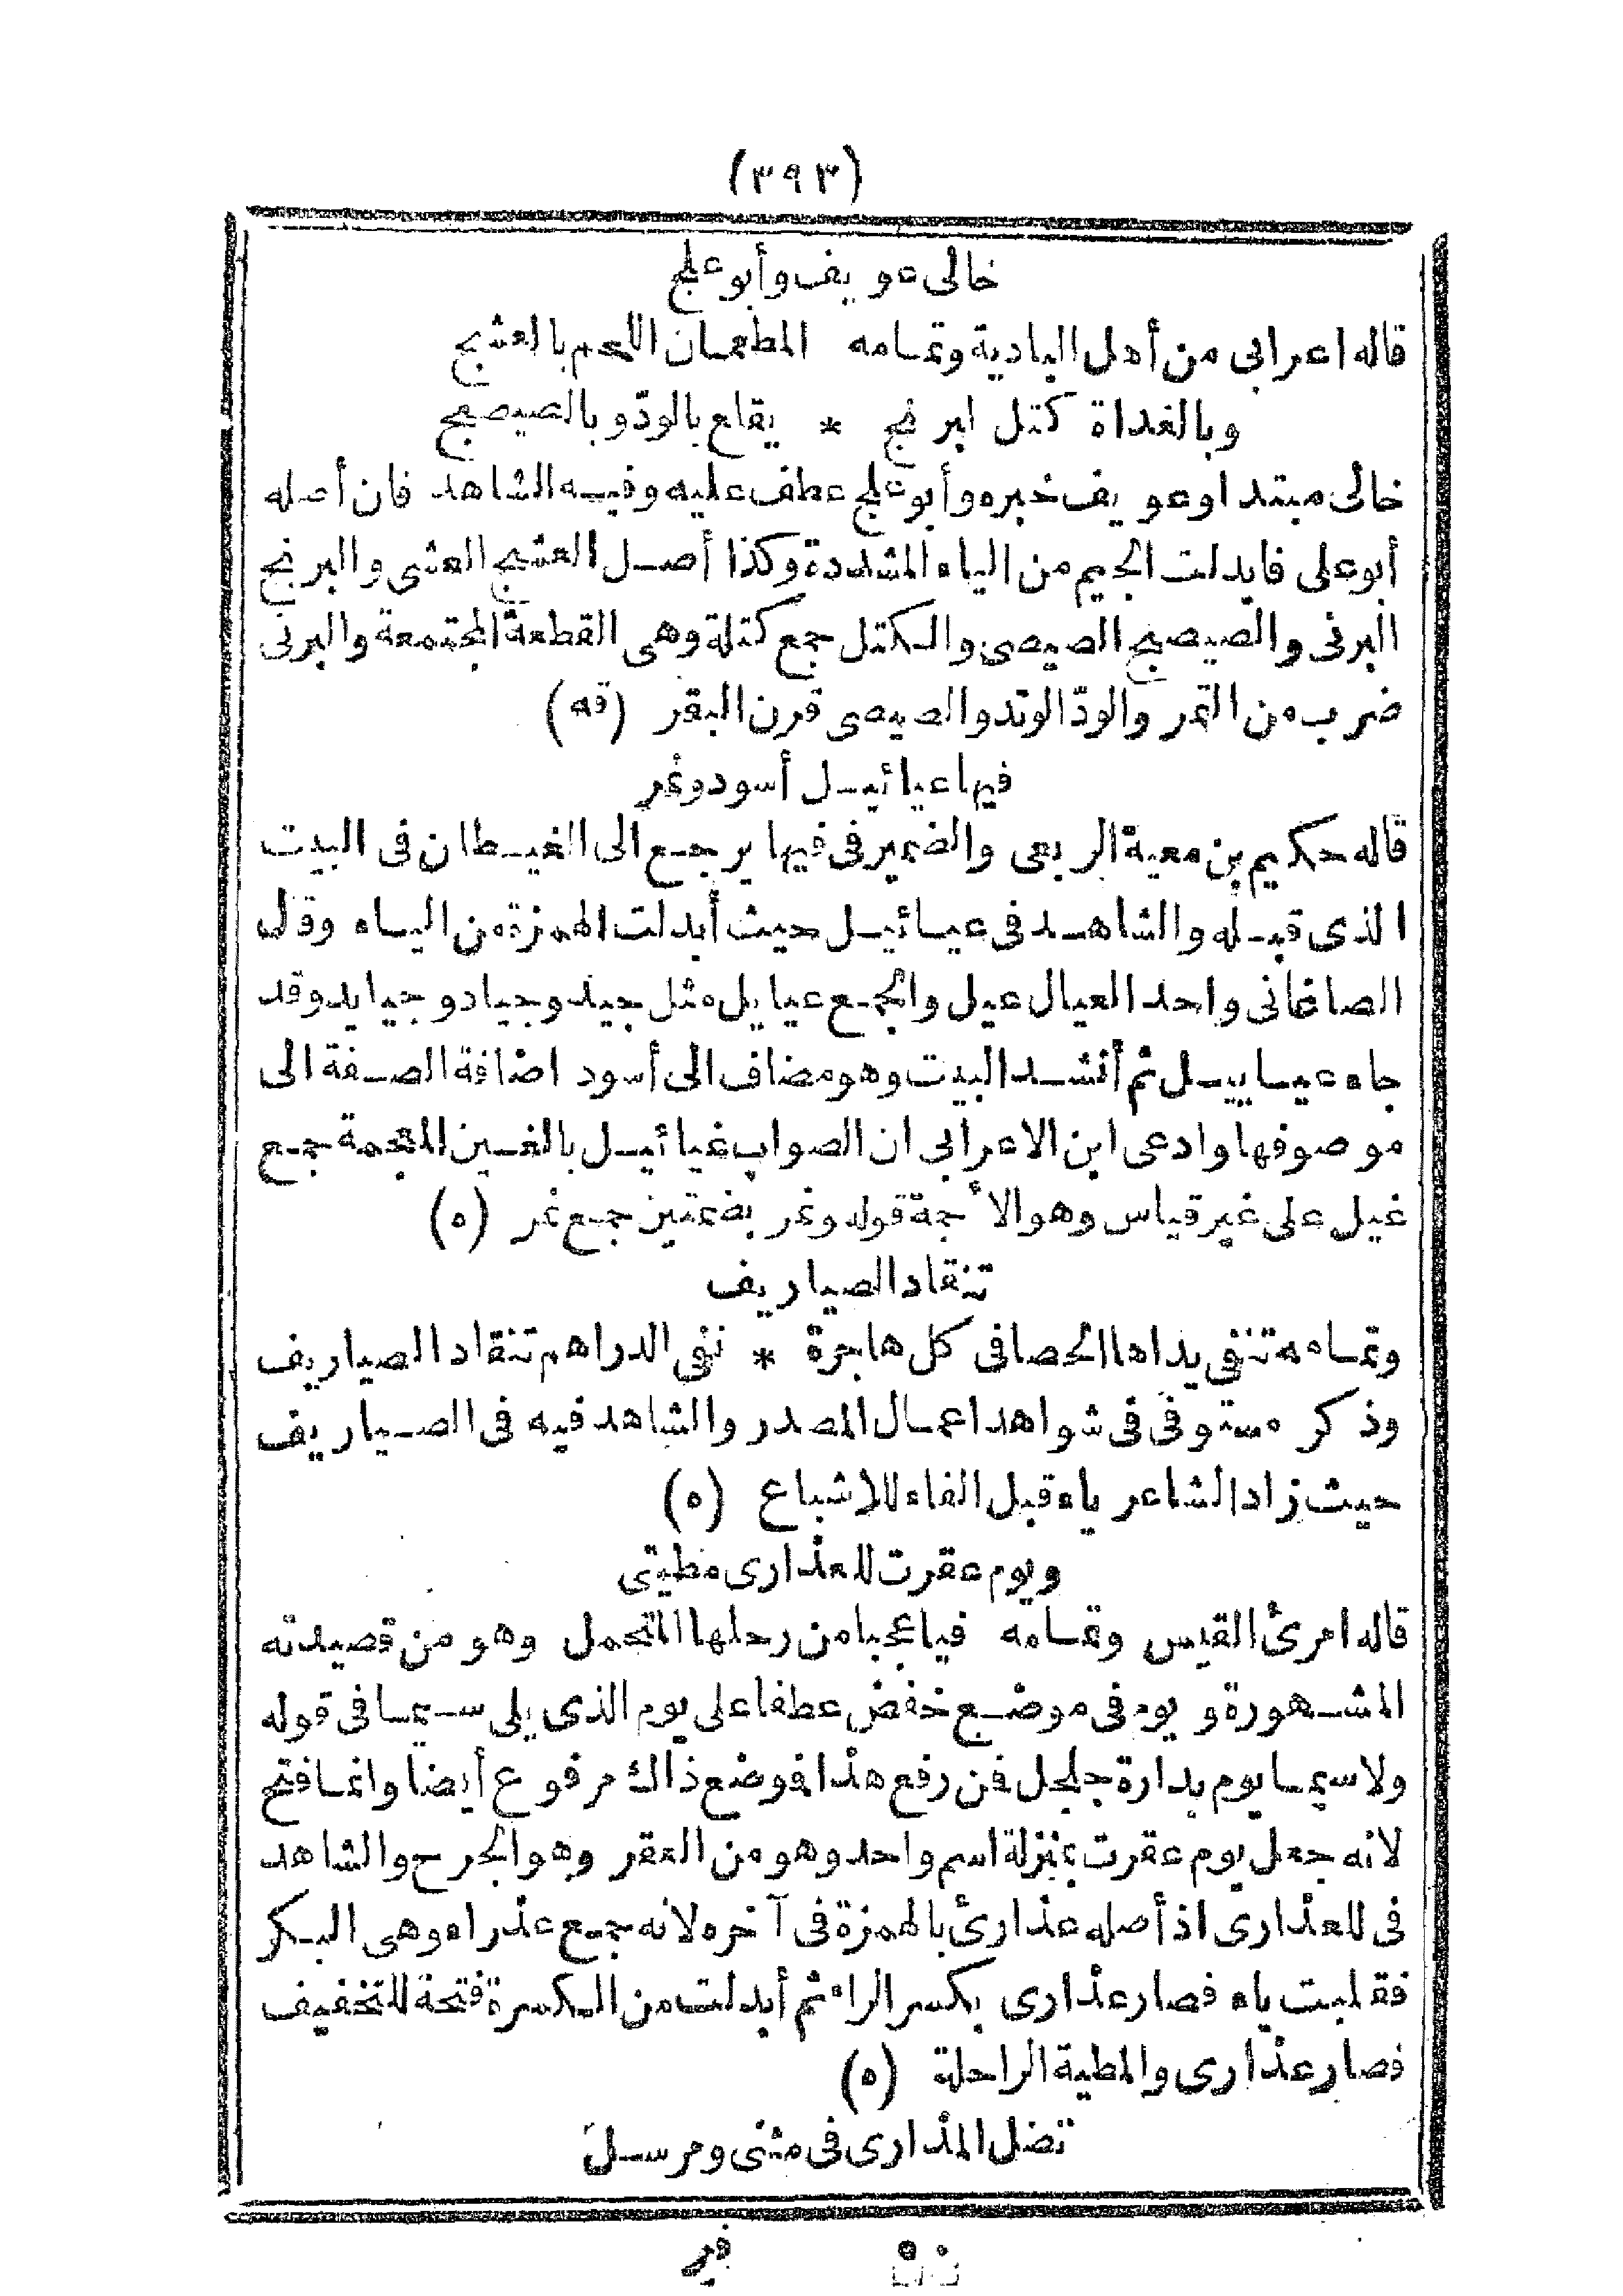 (٣٩٣)
خالى عويف وأبو علج
قاله اعرابى من أهل البادية وتمامه المطعمان اللحم بالعشج
وبالغداة كتل البرنج * يقلع بالودّ وبالصيصج
خالى مبتدا وعويف خبره وأبو علج عطف عليه وفيه الشاهد فان أصله
أبو على فابدلت الجيم من الياء المشددة وكذا أصل العشج العشى والبرنج
البرنى والصيصج الصيصى والكتل جمع كتلة وهى القطعة المجتمعة والبرنى
ضرب من التمر والودّ الوتد والصيصى قرن البقر (قه)
فيها عيائيل أسود ونمر
قاله حكيم بن معية الربعى والضمير فى فيها يرجع الى الغيطان فى البيت
الذى قبله والشاهد فى عيائيل حيث أبدلت الهمزة من الياء وقال
الصاغانى واحد العيال عيل والجمع عيايل مثل جيد وجياد وجيايد وقد
جاء عياييل ثم أنشد البيت وهو مضاف الى أسود اضافة الصفة الى
موصوفها وادعى ابن الاعرابى ان الصواب غيائيل بالغين المعجمة جمع
غيل على غير قياس وهو الأجمة قوله ونمر بضمتين جمع نمر (ه)
تنقاد الصياريف
وتمامه تنفى يداها الحصا فى كل هاجرة * نفى الدراهم تنقاد الصياريف
وذكر مستوفى فى شواهد اعمال المصدر والشاهد فيه فى الصياريف
حيث زاد الشاعر ياء قبل الفاء للاشباع (ه)
ويوم عقرت للعذارى مطيتى
قاله امرئ القيس وتمامه فيا عجبا من رحلها المتحمل وهو من قصيدته
المشهورة ويوم فى موضع خفض عطفا على يوم الذى يلى سيما فى قوله
ولا سيما يوم بدارة جلجل فمن رفع هذا فموضع ذاك مرفوع أيضا وانما فتح
لانه جعل يوم عقرت بمنزلة اسم واحد وهو من العقر وهو الجرح والشاهد
فى للعذارى اذ أصله عذارئ بالهمزة فى آخره لانه جمع عذراء وهى البكر
فقلبت ياء فصار عذارى بكسر الراء ثم أبدلت من الكسرة فتحة للتخفيف
فصار عذارى والمطية الراحلة (ه)
تضل المدارى فى مثنى ومرسل